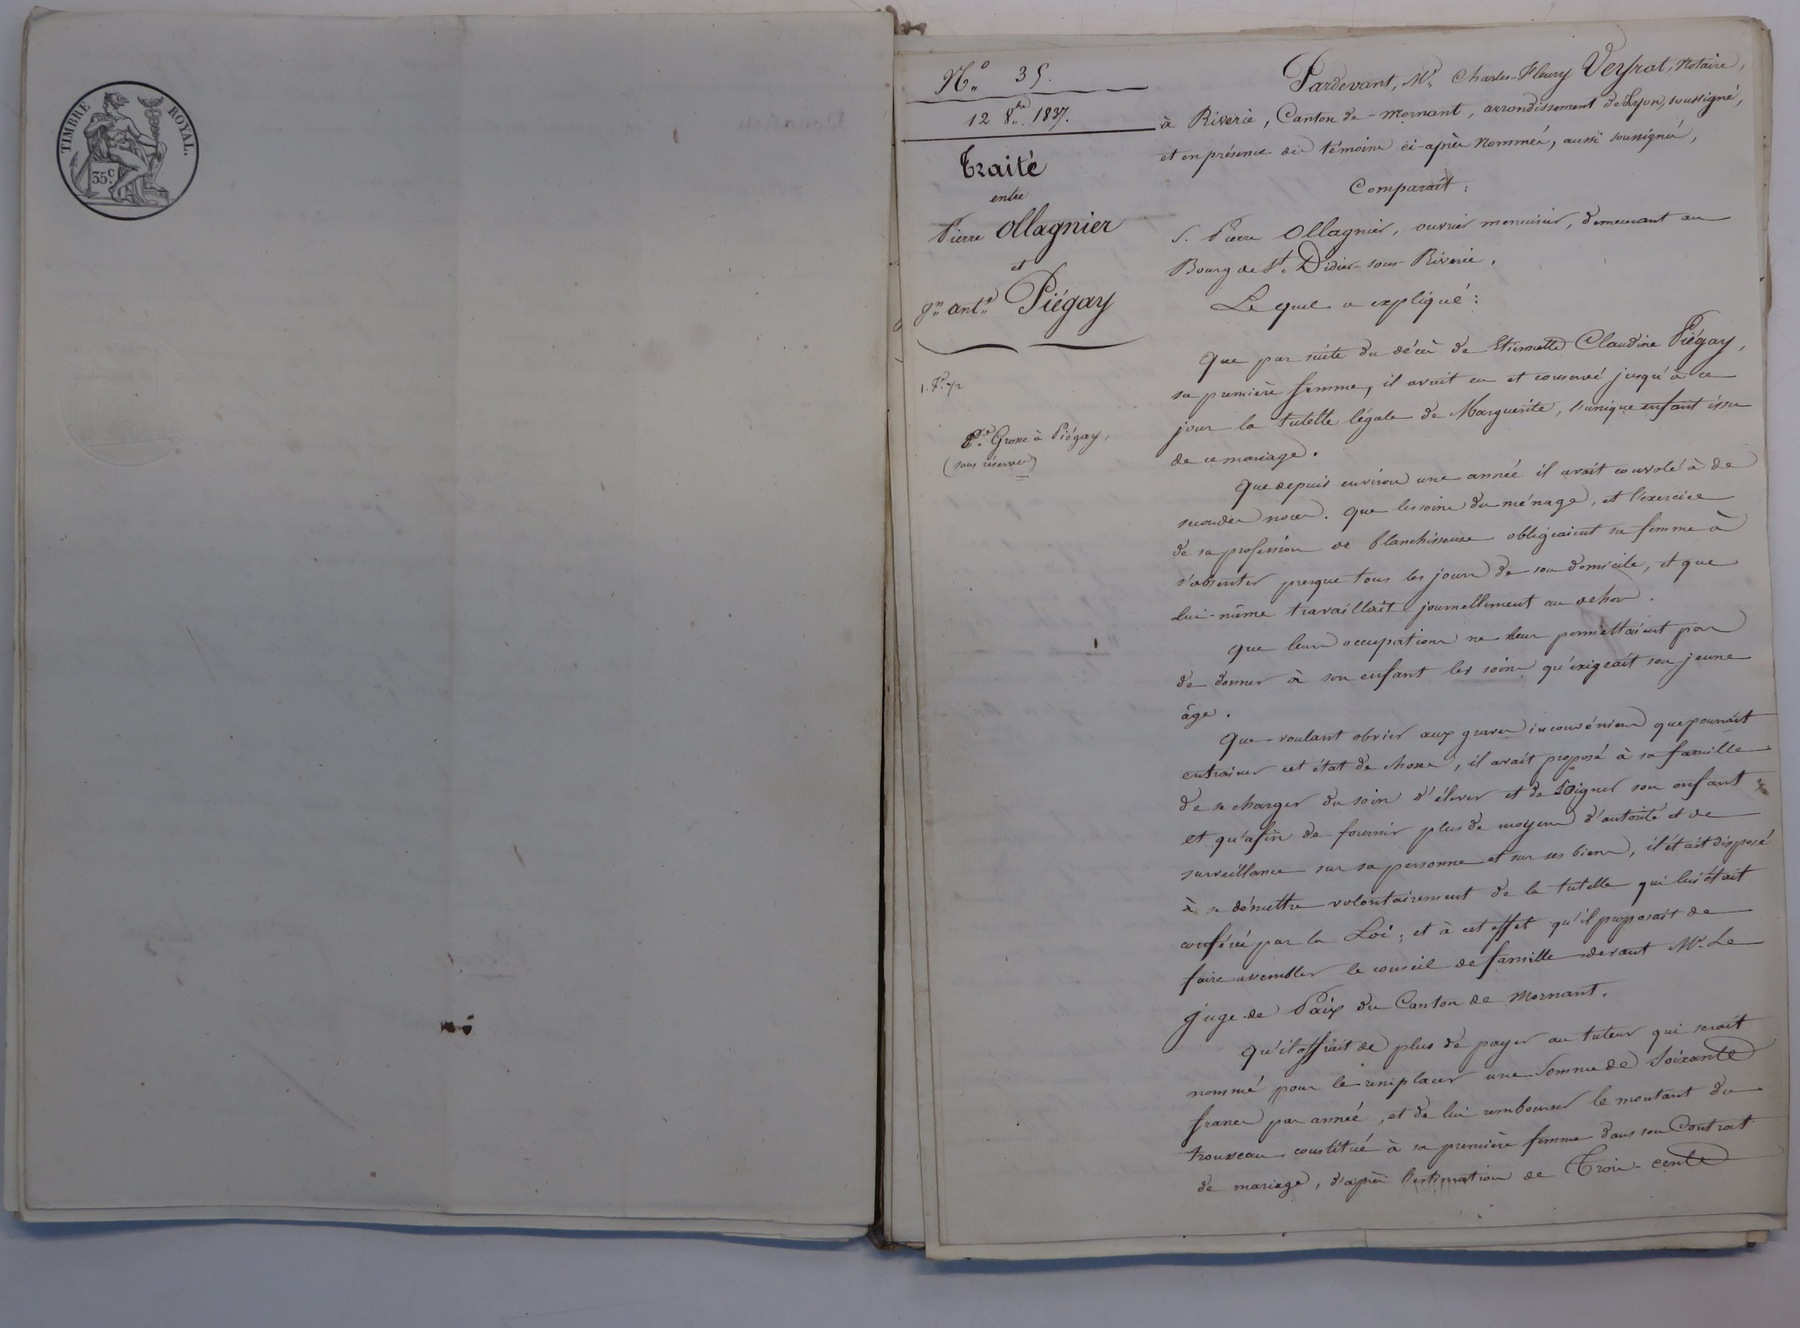 TIMBRE ROYAL.
35 c.
N.° 35.
12 8.bre 1837.
Traité
entre
Pierre Ollagnier
et
Jn. Ant.e Piégay
Gr.se à Piégay,
(sous réserve)
Pardevant, M.e Charles-Fleury Veyrat, Notaire,
à Riverie, Canton de Mornant, arrondissement de Lyon, soussigné,
et en présence des témoins ci-après nommés, aussi soussignés,
Comparait :
S. Pierre Ollagnier, ouvrier menuisier, demeurant au
Bourg de St. Didier-sous-Riverie.
Lequel a expliqué :
Que par suite du décès de Etiennette Claudine Piégay,
sa première femme, il avait eu et conservé jusqu'à ce
jour la tutelle légale de Marguerite, l'unique enfant issu
de ce mariage.
Que depuis environ une année il avait convolé à de
secondes noces. Que les soins du ménage, et l'exercice
de sa profession de blanchisseuse obligeaient sa femme à
s'absenter presque tous les jours de son domicile, et que
lui-même travaillait journellement au dehors.
Que leurs occupations ne leur permettaient pas
de donner à son enfant les soins qu'exigeait son jeune
âge.
Que voulant obvier aux graves inconvéniens que pourrait
entrainer cet état de choses, il avait proposé à sa famille
de se charger du soin d'élever et de soigner son enfant
et qu'afin de fournir plus de moyens d'autorité et de
surveillance sur sa personne et sur ses biens, il était disposé
à se démettre volontairement de la tutelle qui lui était
conférée par la Loi ; et à cet effet qu'il proposait de
faire assembler le conseil de famille devant Mr. Le
Juge de Paix du Canton de Mornant.
Qu'il offrait de plus de payer au tuteur qui serait
nommé pour le remplacer une Somme de Soixante
francs par année, et de lui rembourser le montant du
trousseau constitué à sa première femme dans son Contrat
de mariage, d'après l'estimation de Trois-cents